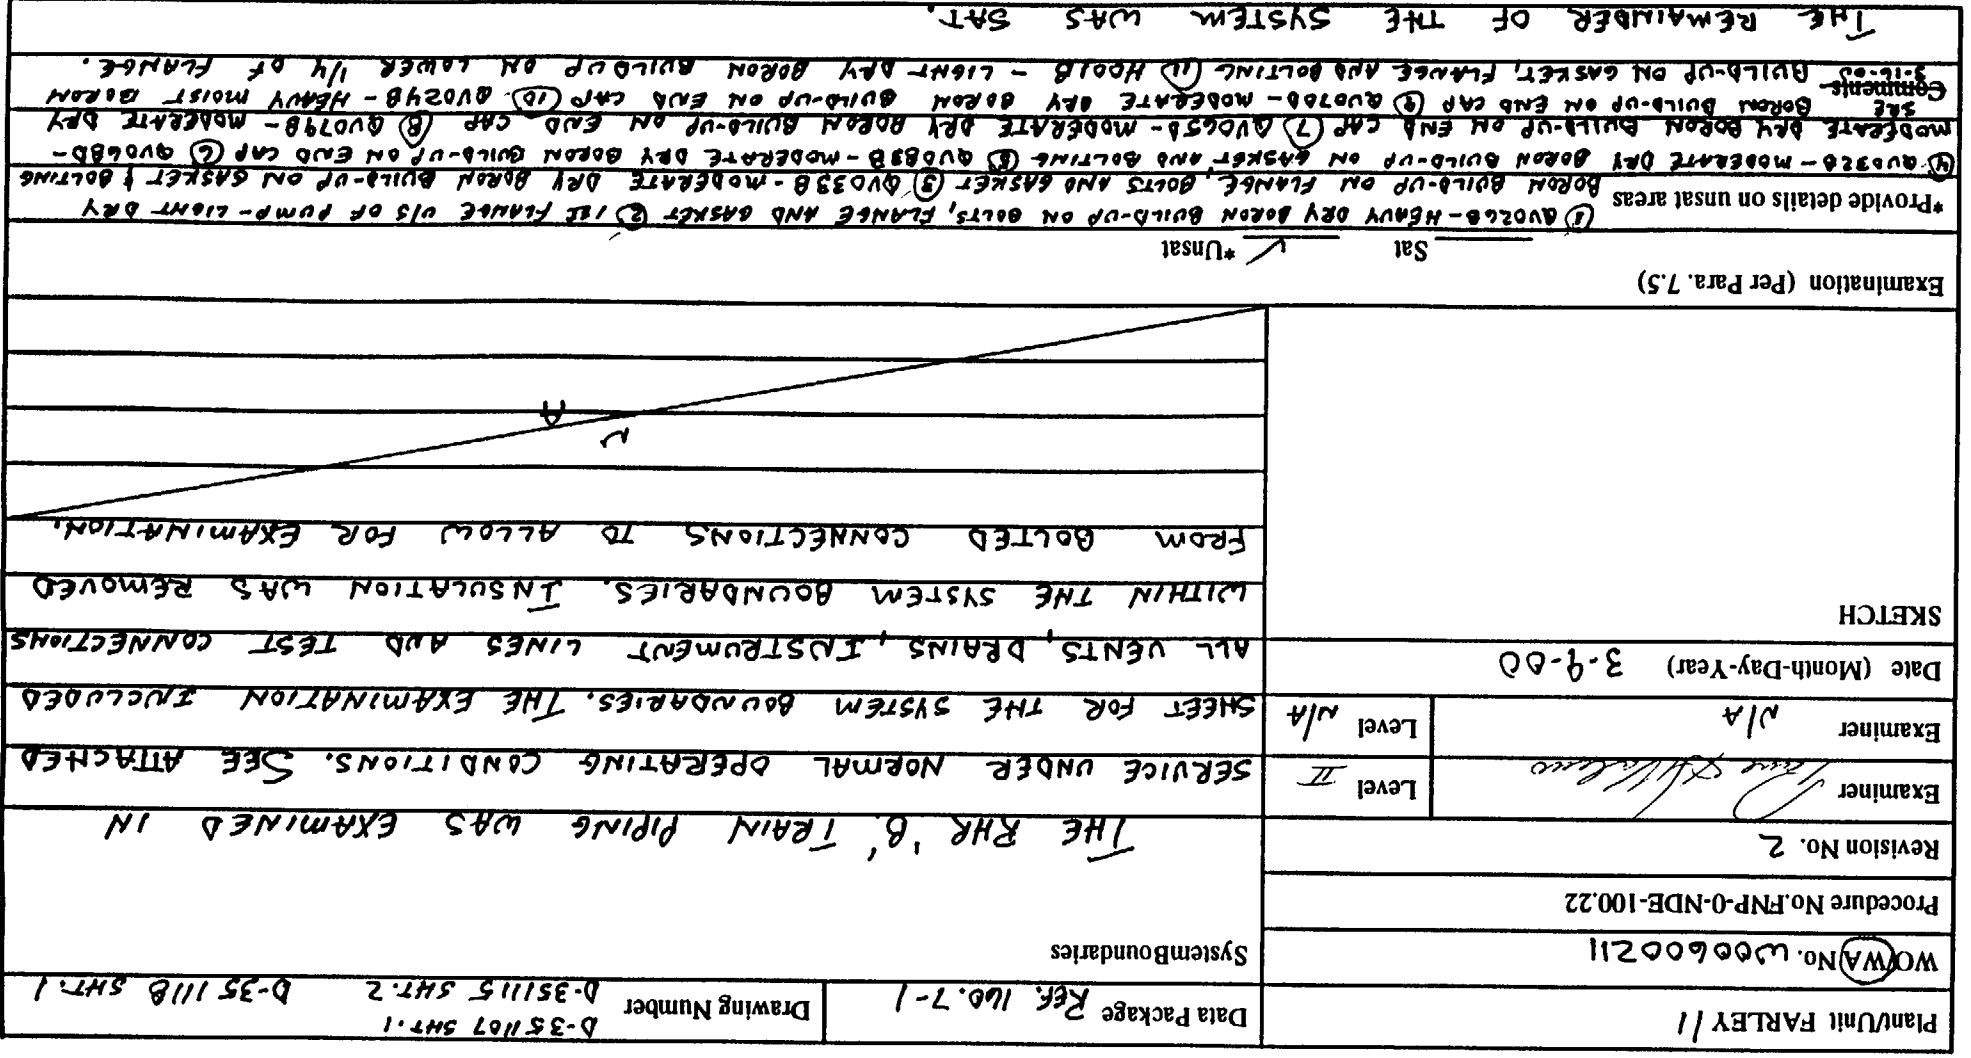 Plant/Unit FARLEY / 1
Data Package REF. 160.7-1
Drawing Number D-351107 SHT.1
D-351115 SHT.2 D-351118 SHT.1
WO/WA No. W00600211
Procedure No.FNP-0-NDE-100.22
Revision No. 2
Examiner
Level II
Examiner N/A
Level N/A
Date (Month-Day-Year) 3-9-00
SKETCH
SystemBoundaries
THE RHR 'B' TRAIN PIPING WAS EXAMINED IN
SERVICE UNDER NORMAL OPERATING CONDITIONS. SEE ATTACHED
SHEET FOR THE SYSTEM BOUNDARIES. THE EXAMINATION INCLUDED
ALL VENTS, DRAINS, INSTRUMENT LINES AND TEST CONNECTIONS
WITHIN THE SYSTEM BOUNDARIES. INSULATION WAS REMOVED
FROM BOLTED CONNECTIONS TO ALLOW FOR EXAMINATION.
N
A
Examination (Per Para. 7.5)
Sat ✓ *Unsat
*Provide details on unsat areas
① QV026B-HEAVY DRY BORON BUILD-UP ON BOLTS, FLANGE AND GASKET ② 1ST FLANGE U/S OF PUMP-LIGHT DRY
BORON BUILD-UP ON FLANGE, BOLTS AND GASKET ③ QV033B-MODERATE DRY BORON BUILD-UP ON GASKET & BOLTING
④ QV032B-MODERATE DRY BORON BUILD-UP ON GASKET AND BOLTING ⑤ QV088B-MODERATE DRY BORON BUILD-UP ON END CAP ⑥ QV068D-
MODERATE DRY BORON BUILD-UP ON END CAP ⑦ QV065D-MODERATE DRY BORON BUILD-UP ON END CAP ⑧ QV079B-MODERATE DRY
SRE BORON BUILD-UP ON END CAP ⑨ QV070D-MODERATE DRY BORON BUILD-UP ON END CAP ⑩ QV024B-HEAVY MOIST BORON
Comments
3-16-00 BUILD-UP ON GASKET, FLANGE AND BOLTING ⑪ H001B - LIGHT DRY BORON BUILDUP ON LOWER 1/4 OF FLANGE.
THE REMAINDER OF THE SYSTEM WAS SAT.